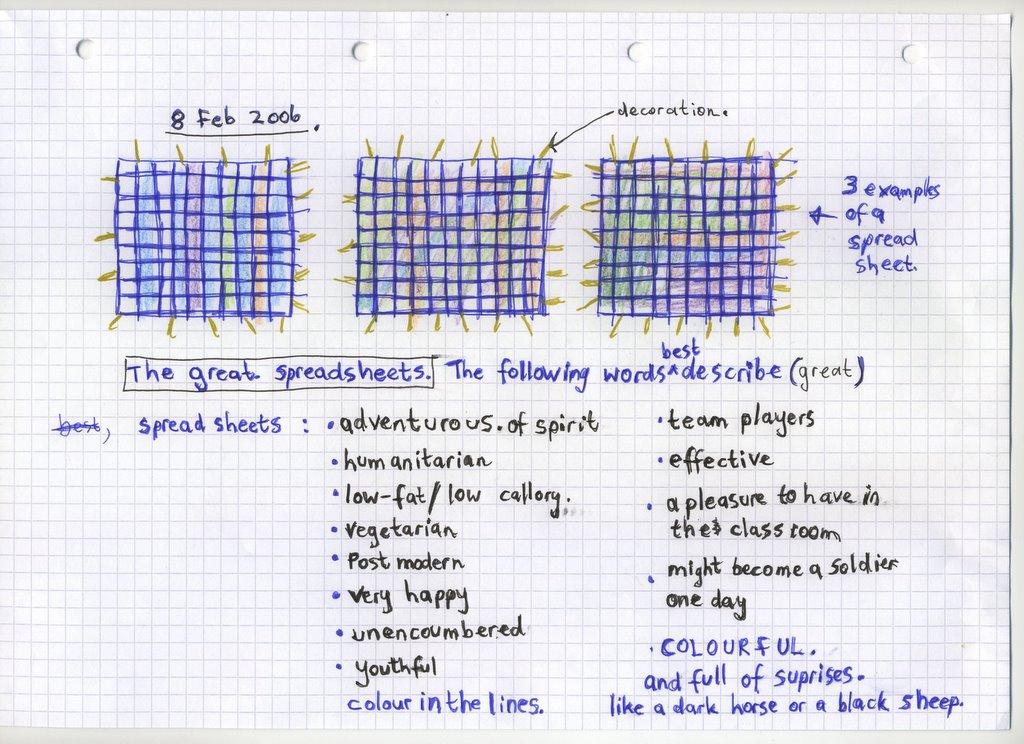 8 Feb 2006.
decoration.
3 examples
of a
spread
sheet.
best
The great spreadsheets. The following words ^ describe (great)
best, spread sheets :
• adventurous. of spirit
• humanitarian
• low-fat/low callory.
• vegetarian
• Post modern
• very happy
• unencoumbered
• youthful
colour in the lines.
• team players
• effective
• a pleasure to have in
the class room
• might become a soldier
one day
• COLOURFUL.
and full of suprises.
like a dark horse or a black sheep.